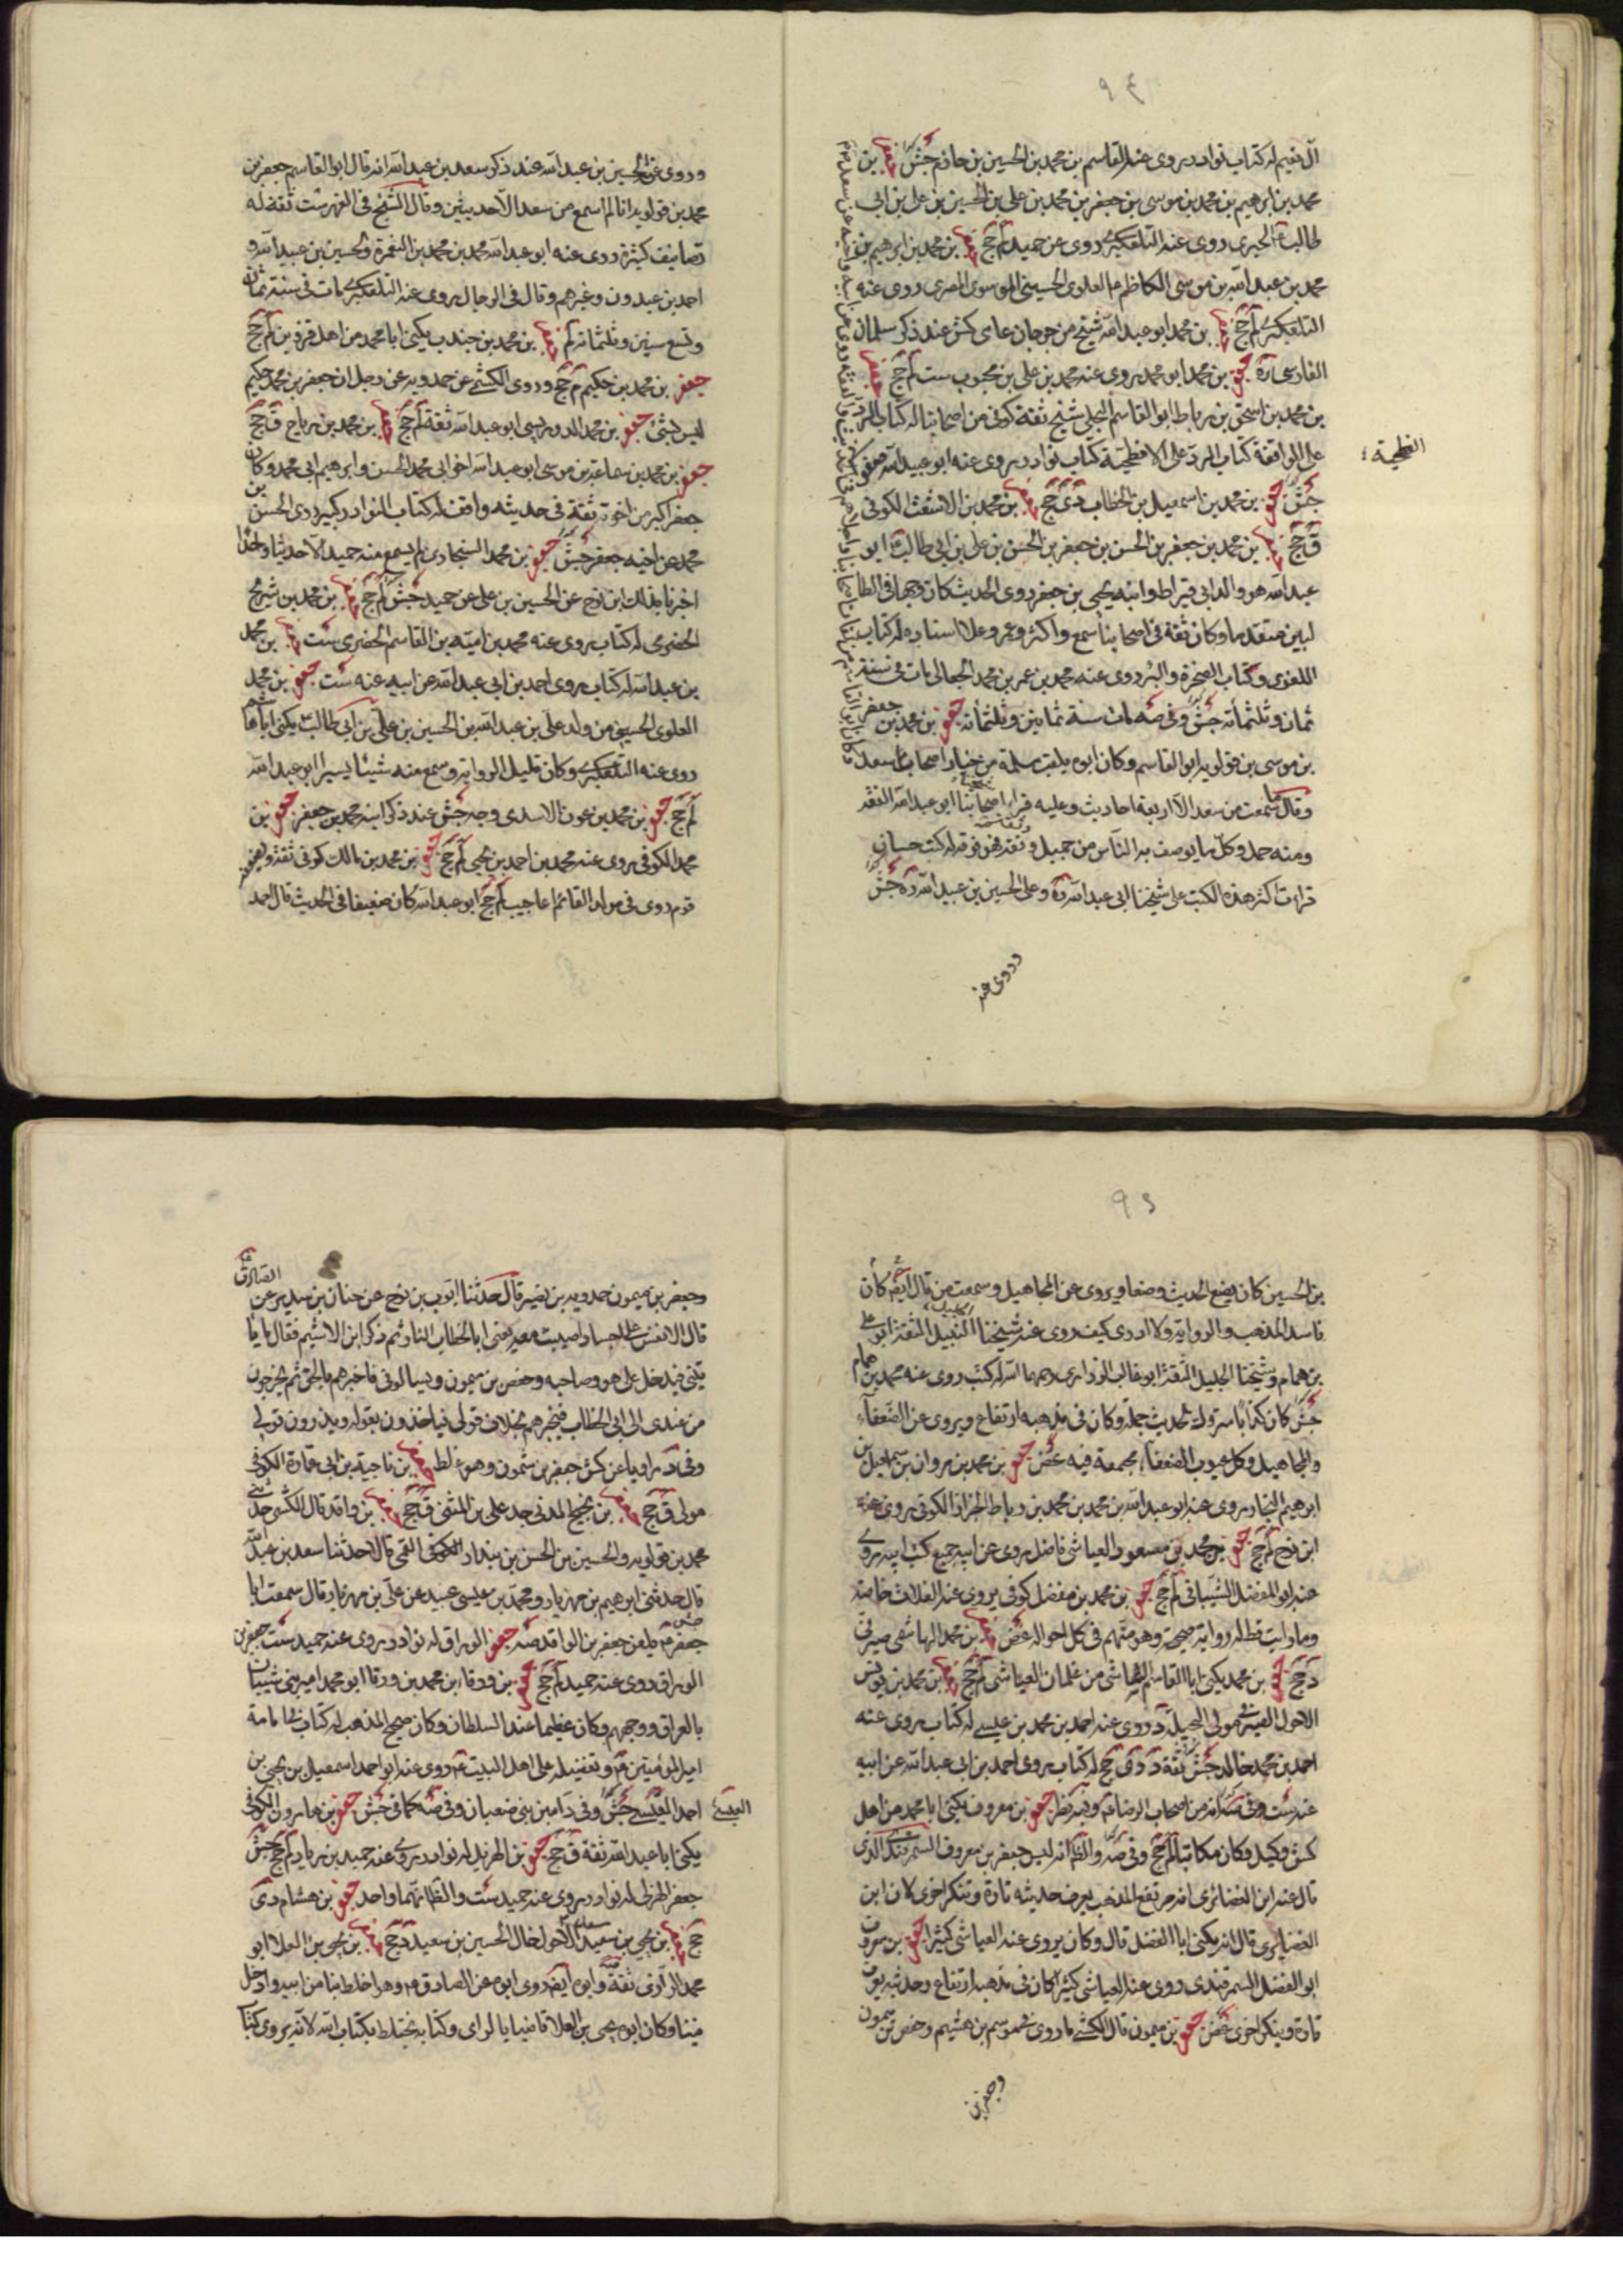 ٩٤
آل نعيم له كتاب نوادر يروى عنه القاسم بن محمد بن الحسين بن حازم جش جعفر بن
محمد بن ابرهيم بن محمد بن موسى بن جعفر بن محمد بن على بن الحسين بن على بن ابى
طالب الحيرى روى عنه التلعكبرى روى عن حميد لم جخ جعفر بن محمد بن ابرهيم بن
محمد بن عبد الله بن موسى الكاظم العلوى الحسينى الموسوى المصرى روى عنه
التلعكبرى لم جخ جعفر بن محمد ابو عبد الله شيخ من جرجان عامى كش عند ذكر سلمان
الفارسى ره جعفر بن محمد ابو محمد يروى عنه محمد بن على بن محبوب ست لم جخ جعفر
بن محمد بن اسحق بن رباط ابو القاسم البجلى شيخ ثقة كوفى من اصحابنا له كتاب الرد
على الواقفة كتاب الرد على الافطحية كتاب نوادر يروى عنه ابو عبيد الله
الفطحية
جش جعفر بن محمد بن اسمعيل بن الخطاب دى جخ جعفر بن محمد بن الاشعث الكوفى
ق جخ جعفر بن محمد بن جعفر بن الحسن بن جعفر بن الحسن بن على بن ابى طالب ابو
عبد الله هو والد ابى قيراط وابنه يحيى بن جعفر روى الحديث كان وجها فى الطا
لبيين متقدما وكان ثقة فى اصحابنا سمع واكثر وعمر وعلا اسناده له كتاب
اللغوى وكتاب الصخرة والبئر روى عنه محمد بن عمر بن محمد الجعابى مات فى سنة
ثمان وثلثمائه جش وفى صه مات سنة ثمانين وثلثمائه جعفر بن محمد بن جعفر
بن موسى بن قولويه ابو القاسم وكان ابوه يلقب مسلمة من خيار اصحاب سعد
وقال ما سمعت من سعد الا اربعة احاديث وعليه قراء اصحابنا ابو عبد الله الفقه
ومنه حمل وكل ما يوصف به الناس من جميل وثقة وفقه فهو فوقه له كتب حسان
قرات اكثر هذه الكتب على شيخنا ابى عبد الله ره وعلى الحسين بن عبيد الله ره جش
وروى عن
وروى عن الحسين بن عبد الله عند ذكر سعد بن عبد الله انه قال ابو القاسم جعفر بن
محمد بن قولويه انا لم اسمع من سعد الا حديثين وقال الشيخ فى الفهرست ثقة له
تصانيف كثيرة روى عنه ابو عبد الله محمد بن محمد بن النعمرة والحسين بن عبيد الله و
احمد بن عبدون وغيرهم وقال فى الرجال يروى عنه التلعكبرى مات فى سنة ثمان
وتسع ستين وثلثمائه لم جعفر بن محمد بن جندب يكنى ابا محمد من اهل قزوين لم جخ
جعفر بن محمد بن حكيم م جخ وروى الكشى عن حمدويه عن رجل ان جعفر بن محمد حكيم
ليس بشئ جعفر بن محمد الدوريستى ابو عبد الله ثقة لم جخ جعفر بن محمد بن رباح ق جخ
جعفر بن محمد بن سماعة بن موسى ابو عبد الله اخو ابى محمد الحسن وابرهيم ابى محمد وكان
جعفر اكبر من اخوته ثقة فى حديثه واقف له كتاب النوادر كبير روى الحسن بن
محمد عن اخيه جعفر جش جعفر بن محمد السنجارى لم يسمع منه حميد الا حديثا واحدا
اخبرنا بذلك ابن نوح عن الحسين بن على عن حميد جش لم جخ جعفر بن محمد بن شريح
الحضرمى له كتاب يروى عنه محمد بن امية بن القاسم الحضرى ست جعفر بن محمد
بن عبد الله له كتاب يروى احمد بن ابى عبد الله عن ابيه عنه ست جعفر بن محمد
العلوى الحسينى من ولد على بن عبد الله بن الحسين بن على بن ابى طالب يكنى ابا هاشم
روى عنه التلعكبرى وكان قليل الرواية وسمع منه شيئا يسيرا ابو عبد الله
لم جخ جعفر بن محمد بن عون الاسدى وجه جش عند ذكر ابنه محمد بن جعفر جعفر بن
محمد الكوفى يروى عنه محمد بن احمد بن يحيى لم جخ جعفر بن محمد بن مالك كوفى ثقة ويضعفه
قوم روى فى مولد القائم اعاجيب لم جخ ابو عبد الله كان ضعيفا فى الحديث قال احمد
٩٥
بن الحسين كان يضع الحديث وضعا ويروى عن المجاهيل وسمعت من قال ايضا كان
فاسد المذهب والرواية ولا ادرى كيف روى عنه شيخنا النبيل الثقة ابو على
بن همام وشيخنا الجليل الثقة ابو غالب الزرارى رحمهما الله له كتب روى عنه محمد بن همام
جش كان كذابا متروك الحديث جملة وكان فى مذهبه ارتفاع ويروى عن الضعفاء
والمجاهيل وكل عيوب الضعفاء مجتمعة فيه غض جعفر بن محمد بن مروان بن اسمعيل بن
ابرهيم النجار يروى عنه ابو عبد الله بن محمد بن محمد بن رباط الخزاز الكوفى يروى عنه
ابن نوح لم جخ جعفر بن محمد بن مسعود العياشى فاضل يروى عن ابيه جميع كتب ابيه يروى
عنه ابو المفضل الشيبانى لم جخ جعفر بن محمد بن مفضل كوفى يروى عنه الغلاة خاصة
وما رايت قط له رواية صحيحة وهو متهم فى كل احواله غض جعفر بن محمد الهاشمى صيرفى
د جخ جعفر بن محمد يكنى ابا القاسم الشاشى من غلمان العياشى لم جخ جعفر بن محمد بن يونس
الاحول الصيرفى مولى البجيلة د روى عنه احمد بن محمد بن عيسى له كتاب يروى عنه
احمد بن محمد خالد جش ثقة د دى جخ له كتاب يروى احمد بن ابى عبد الله عن ابيه
عنه ست وفى صه انه من اصحاب الرضا وفيه نظر جعفر بن معروف يكنى ابا محمد من اهل
كش وكيل وكان مكاتبا لم جخ وفى صه والظ انه ليس جعفر بن معروف السمرقندى الذى
قال عنه ابن الغضائرى انه مرتفع المذهب يعرف حديثه تارة وينكر اخرى لان ابن
الغضايرى قال انه يكنى ابا الفضل قال وكان يروى عنه العياشى كثيرا جعفر بن معروف
ابو الفضل السمرقندى روى عنه العياشى كثيرا كان فى مذهبه ارتفاع وحديثه يعرف
تارة وينكر اخرى غض جعفر بن ميمون قال الكشى ما روى فى موسى بن هشيم وحفص بن ميمون
وجعفر بن
وجعفر بن ميمون حمدويه بن نصير قال حدثنا ايوب بن نوح عن حنان بن سدير عن الصادق
قال انى لانفس على اجساد اصيبت معه يعنى ابا الخطاب النار ثم ذكر ابن الاشيم فقال يا
تينى فيدخل على هو وصاحبه وحفص بن ميمون ويسالونى فاخبرهم بالحق ثم يخرجون
من عندى الى ابى الخطاب فيخبرهم بخلاف قولى فياخذون بقوله ويذرون قولى
وفى د راويا عن كش جعفر بن شمون وهو غلط جعفر بن ناجية بن ابى عمارة الكوفى
مولى ق جخ جعفر بن نجيح المدنى جد على بن المثنى ق جخ جعفر بن واقد قال الكشى حدثنى
محمد بن قولويه والحسين بن الحسن بن بندار القمى قال حدثنا سعد بن عبد الله
قال حدثنى ابرهيم بن مهزيار ومحمد بن عيسى عبيد عن على بن مهزيار قال سمعت ابا
جعفر يلعن جعفر بن الواقد صه جعفر الوراق له نوادر يروى عنه حميد ست جعفر بن
الوراق روى عنه حميد لم جخ جعفر بن ورقاء بن محمد بن ورقا ابو محمد امير بنى شيبان
بالعراق ووجههم وكان عظيما عند السلطان وكان صحيح المذهب له كتاب فى امامة
امير المؤمنين وتفضيله على اهل البيت روى عنه ابو احمد اسمعيل بن يحيى بن
احمد العبسى جش وفى د امين بنى ضعبان وفى صه كما فى جش جعفر بن هارون الكوفى
العبسى
يكنى ابا عبد الله ثقة ق جخ جعفر بن الهزيل له نوادر يروى عنه حميد بن زياد لم جخ جش
جعفر الهزلى له نوادر يروى عنه حميد ست والظ انهما واحد جعفر بن هشام دى
جخ جعفر بن يحيى بن سعيد الاحول خال الحسين بن سعيد د جخ جعفر بن يحيى بن العلا ابو
محمد الرازى ثقة وابوه ايضا روى ابوه عن الصادق وهو اخلط بنا من ابيه وادخل
فينا وكان ابوه يحيى بن العلا قاضيا بالراى وكتابه يختلط بكتاب ابيه لانه يروى كتاب